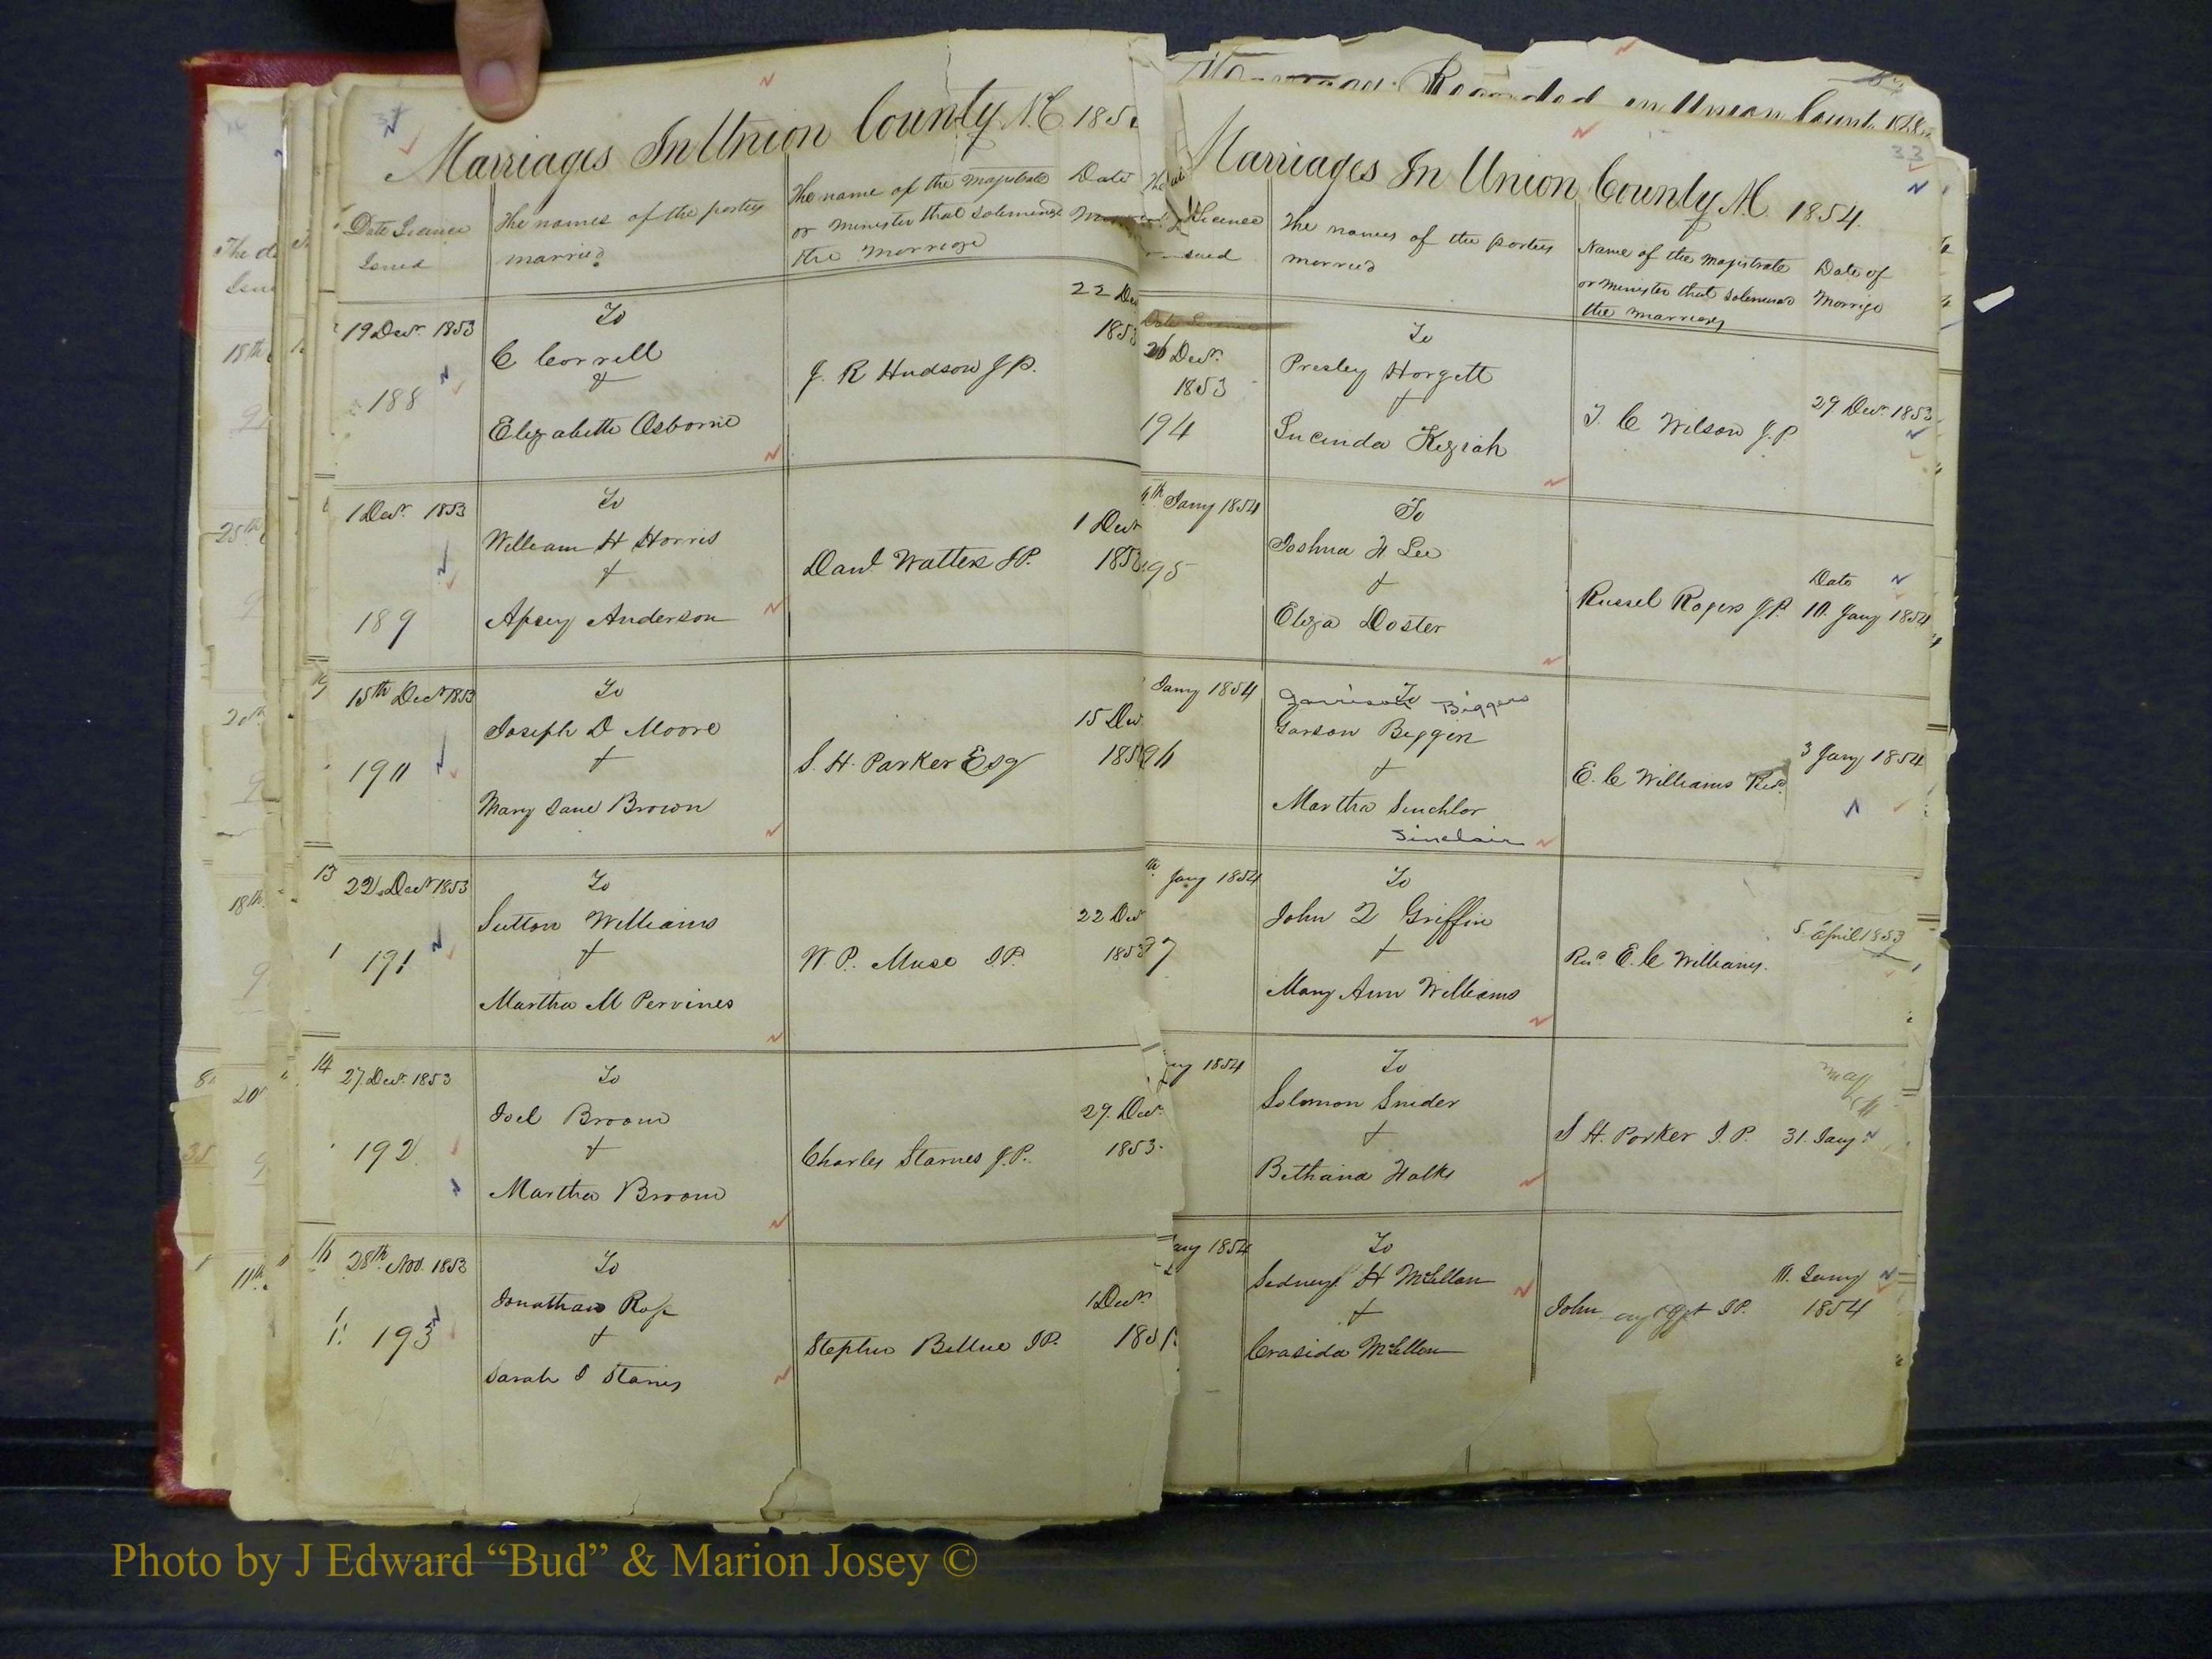 Marriages In Union County N.C. 185
Date Licence Issued
The names of the parties married
The name of the Magistrate or Minister that Solemnize the Marriage
Date
19 Decr. 1853
To
C Correll
&
Elizabeth Osborne
J. R Hudson J P.
22 Dec
1853
188
1 Decr. 1853
To
William H Horris
&
Apsey Anderson
Danl. Watters J P.
1 Decr
185
189
15th Decr 1853
To
Joseph D Moore
&
Mary Jane Brown
S. H. Parker Esq
15 Dec
185
190
13
22 Decr 1853
To
Sutton Williams
&
Martha M Pervines
W P. Muse J P.
22 Dec
1853
191
14
27 Decr. 1853
To
Joel Broom
&
Martha Broom
Charles Starnes J. P.
29 Decr.
1853.
192
28th Nov. 1853
To
Jonathan
&
Sarah J
Stephen Bellue J P.
1 Decr.
193
Recorded in Union
33
Marriages In Union County N.C. 1854.
Licence
The names of the parties married
Name of the Magistrate or Minister that Solemnized the Marriage
Date of Marriage
26 Decr.
1853
194
To
Presley Horgett
&
Lucinda Keziah
T. C Wilson J. P
29 Decr. 1853
Jany 1854
95
To
Joshua H Lee
&
Eliza Doster
Russel Rogers J. P.
Date
10. Jany 1854
Jany 1854
To
Garrison Biggers
Garson Biggers
&
Martha Sinchlor
Sinclair
E. C Williams Revd.
3 Jany 1854
Jany 1854
7
To
John Q Griffin
&
Mary Ann Williams
Revd. E. C Williams.
5 April 1853
1854
To
Solomon Snider
&
Bethana
S H. Parker J. P.
31. Jany
1854
To
Sidney H McLellan
&
Crasida McLellan
John
J P.
10. Jany
1854
Photo by J Edward “Bud” & Marion Josey ©